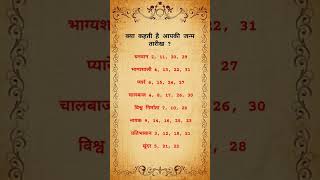 क्या कहती है आपकी जन्म
तारीख ?
धनवान 2, 11, 20, 29
भाग्यशाली 4, 13, 22, 31
प्यारे 6, 15, 24, 27
चालबाज 4, 8, 17, 26, 30
विश्व विजेता 7, 10, 28
भावुक 9, 14, 16, 25, 23
प्रतिभावान 3, 12, 18, 21
सुंदर 5, 21, 22
भाग्यश
, 31
प्यारे
चालबा
विश्व
, 28